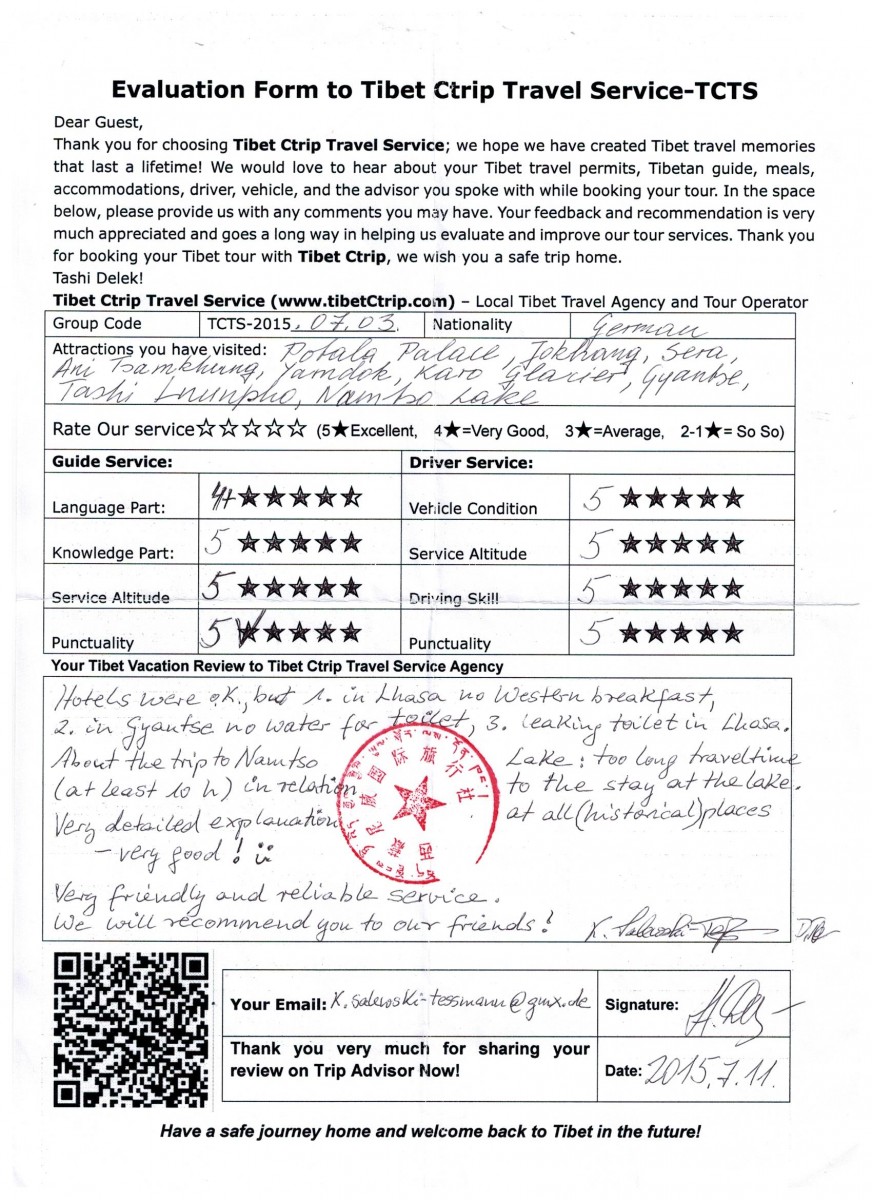 Evaluation Form to Tibet Ctrip Travel Service-TCTS
Dear Guest,
Thank you for choosing Tibet Ctrip Travel Service; we hope we have created Tibet travel memories
that last a lifetime! We would love to hear about your Tibet travel permits, Tibetan guide, meals,
accommodations, driver, vehicle, and the advisor you spoke with while booking your tour. In the space
below, please provide us with any comments you may have. Your feedback and recommendation is very
much appreciated and goes a long way in helping us evaluate and improve our tour services. Thank you
for booking your Tibet tour with Tibet Ctrip, we wish you a safe trip home.
Tashi Delek!
Tibet Ctrip Travel Service (www.tibetCtrip.com) – Local Tibet Travel Agency and Tour Operator
Group Code TCTS-2015.07.03. Nationality German
Attractions you have visited: Potala Palace, Jokhang, Sera,
Ani Tsamkhung, Yamdok, Karo Glacier, Gyantse,
Tashi Lnunpho, Namtso Lake
Rate Our service☆☆☆☆☆ (5★Excellent, 4★=Very Good, 3★=Average, 2-1★= So So)
Guide Service: Driver Service:
Language Part: 4+ ★★★★★ Vehicle Condition 5 ★★★★★
Knowledge Part: 5 ★★★★★ Service Altitude 5 ★★★★★
Service Altitude 5 ★★★★★ Driving Skill 5 ★★★★★
Punctuality 5 ★★★★★ Punctuality 5 ★★★★★
Your Tibet Vacation Review to Tibet Ctrip Travel Service Agency
Hotels were oK., but 1. in Lhasa no Western breakfast,
2. in Gyantse no water for toilet, 3. leaking toilet in Lhasa.
About the trip to Namtso Lake: too long traveltime
(at least 10 h) in relation to the stay at the lake.
Very detailed explanation at all (historical) places
– very good!
国际旅行社
Very friendly and reliable service.
We will recommend you to our friends!
Your Email: K.salewski-tessmann@gmx.de Signature:
Thank you very much for sharing your
review on Trip Advisor Now! Date: 2015.7.11.
Have a safe journey home and welcome back to Tibet in the future!